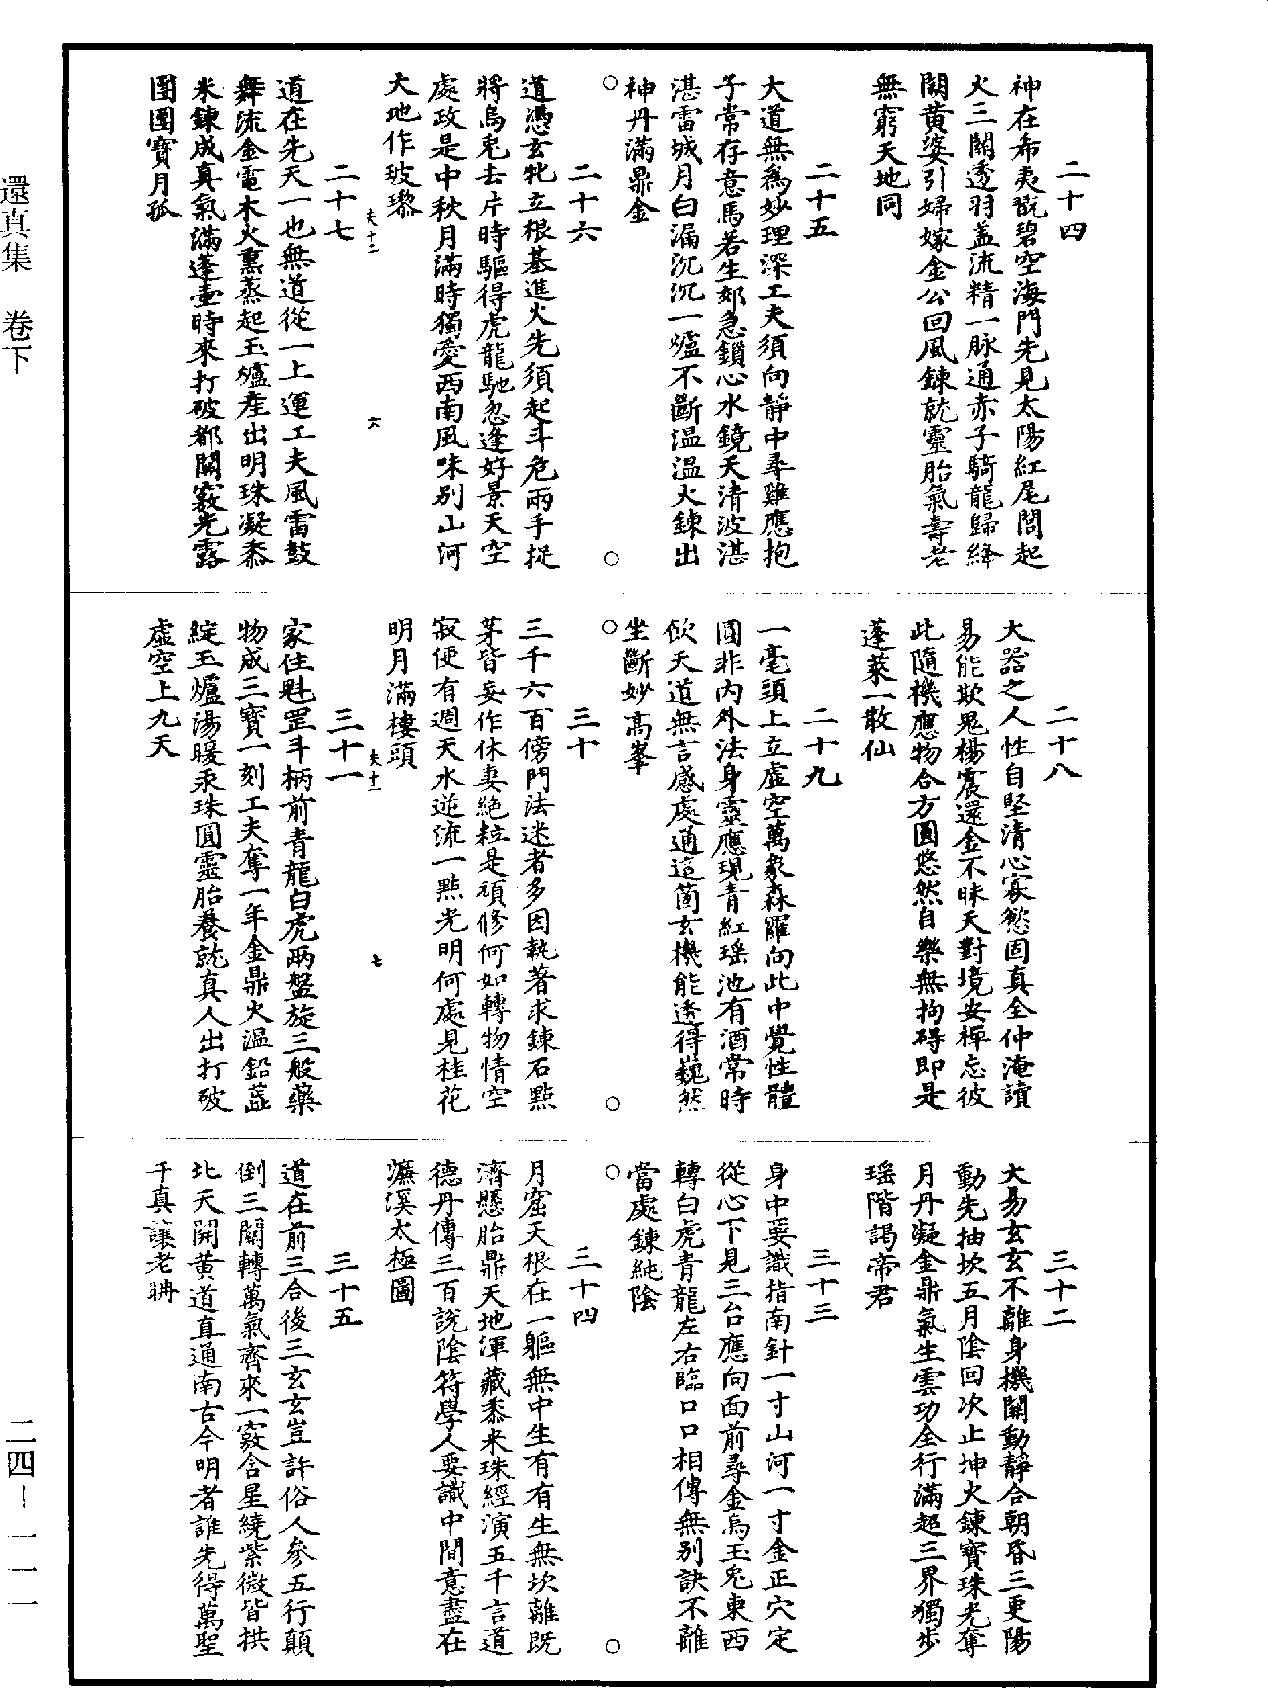 還真集　卷下
二十四
神在希夷翫碧空海門先見太陽紅尾閭起
火三關透羽蓋流精一脉通赤子騎龍歸絳
闕黃婆引婦嫁金公回風鍊就靈胎氣壽老
無窮天地同
二十五
大道無為妙理深工夫須向靜中尋雞應抱
子常存意馬若生郊急鎖心水鏡天清波湛
湛雷城月白漏沉沉一爐不斷溫溫火鍊出
神丹滿鼎金
二十六
道憑玄牝立根基進火先須起斗危兩手捉
將烏兎去片時驅得虎龍馳忽逢好景天空
處政是中秋月滿時獨愛西南風味別山河
大地作玻瓈
夫十二　六
二十七
道在先天一也無道從一上運工夫風雷鼓
舞流金電木火熏蒸起玉爐產出明珠凝黍
米鍊成真氣滿蓬壺時來打破都關竅光露
團團寶月孤
二十八
大器之人性自堅清心寡慾固真全仲淹讀
易能欺鬼楊震還金不昧天對境安禪忘彼
此隨機應物合方圓悠然自樂無拘碍即是
蓬萊一散仙
二十九
一毫頭上立虛空萬象森羅向此中覺性體
圓非內外法身靈應現青紅瑤池有酒常時
飲天道無言感處通這箇玄機能透得巍然
坐斷妙高峯
三十
三千六百傍門法迷者多因執著求鍊石點
茅皆妄作休妻絕粒是頑修何如轉物情空
寂便有週天水逆流一點光明何處見桂花
明月滿樓頭
夫十二　七
三十一
家住魁罡斗柄前青龍白虎兩盤旋三般藥
物成三寶一刻工夫奪一年金鼎火溫鉛蕋
綻玉爐湯暖汞珠圓靈胎養就真人出打破
虛空上九天
三十二
大易玄玄不離身機關動靜合朝昏三更陽
動先抽坎五月陰回次止坤火鍊寶珠光奪
月丹凝金鼎氣生雲功全行滿超三界獨步
瑤階謁帝君
三十三
身中要識指南針一寸山河一寸金正穴定
從心下見三台應向面前尋金烏玉兎東西
轉白虎青龍左右臨口口相傳無別訣不離
當處鍊純陰
三十四
月窟天根在一軀無中生有有生無坎離既
濟懸胎鼎天地渾藏黍米珠經演五千言道
德丹傳三百說陰符學人要識中間意盡在
濂溪太極圖
三十五
道在前三合後三玄玄豈許俗人參五行顛
倒三關轉萬氣齊來一竅含星繞紫微皆拱
北天開黃道直通南古今明者誰先得萬聖
千真讓老聃
二四－一一一